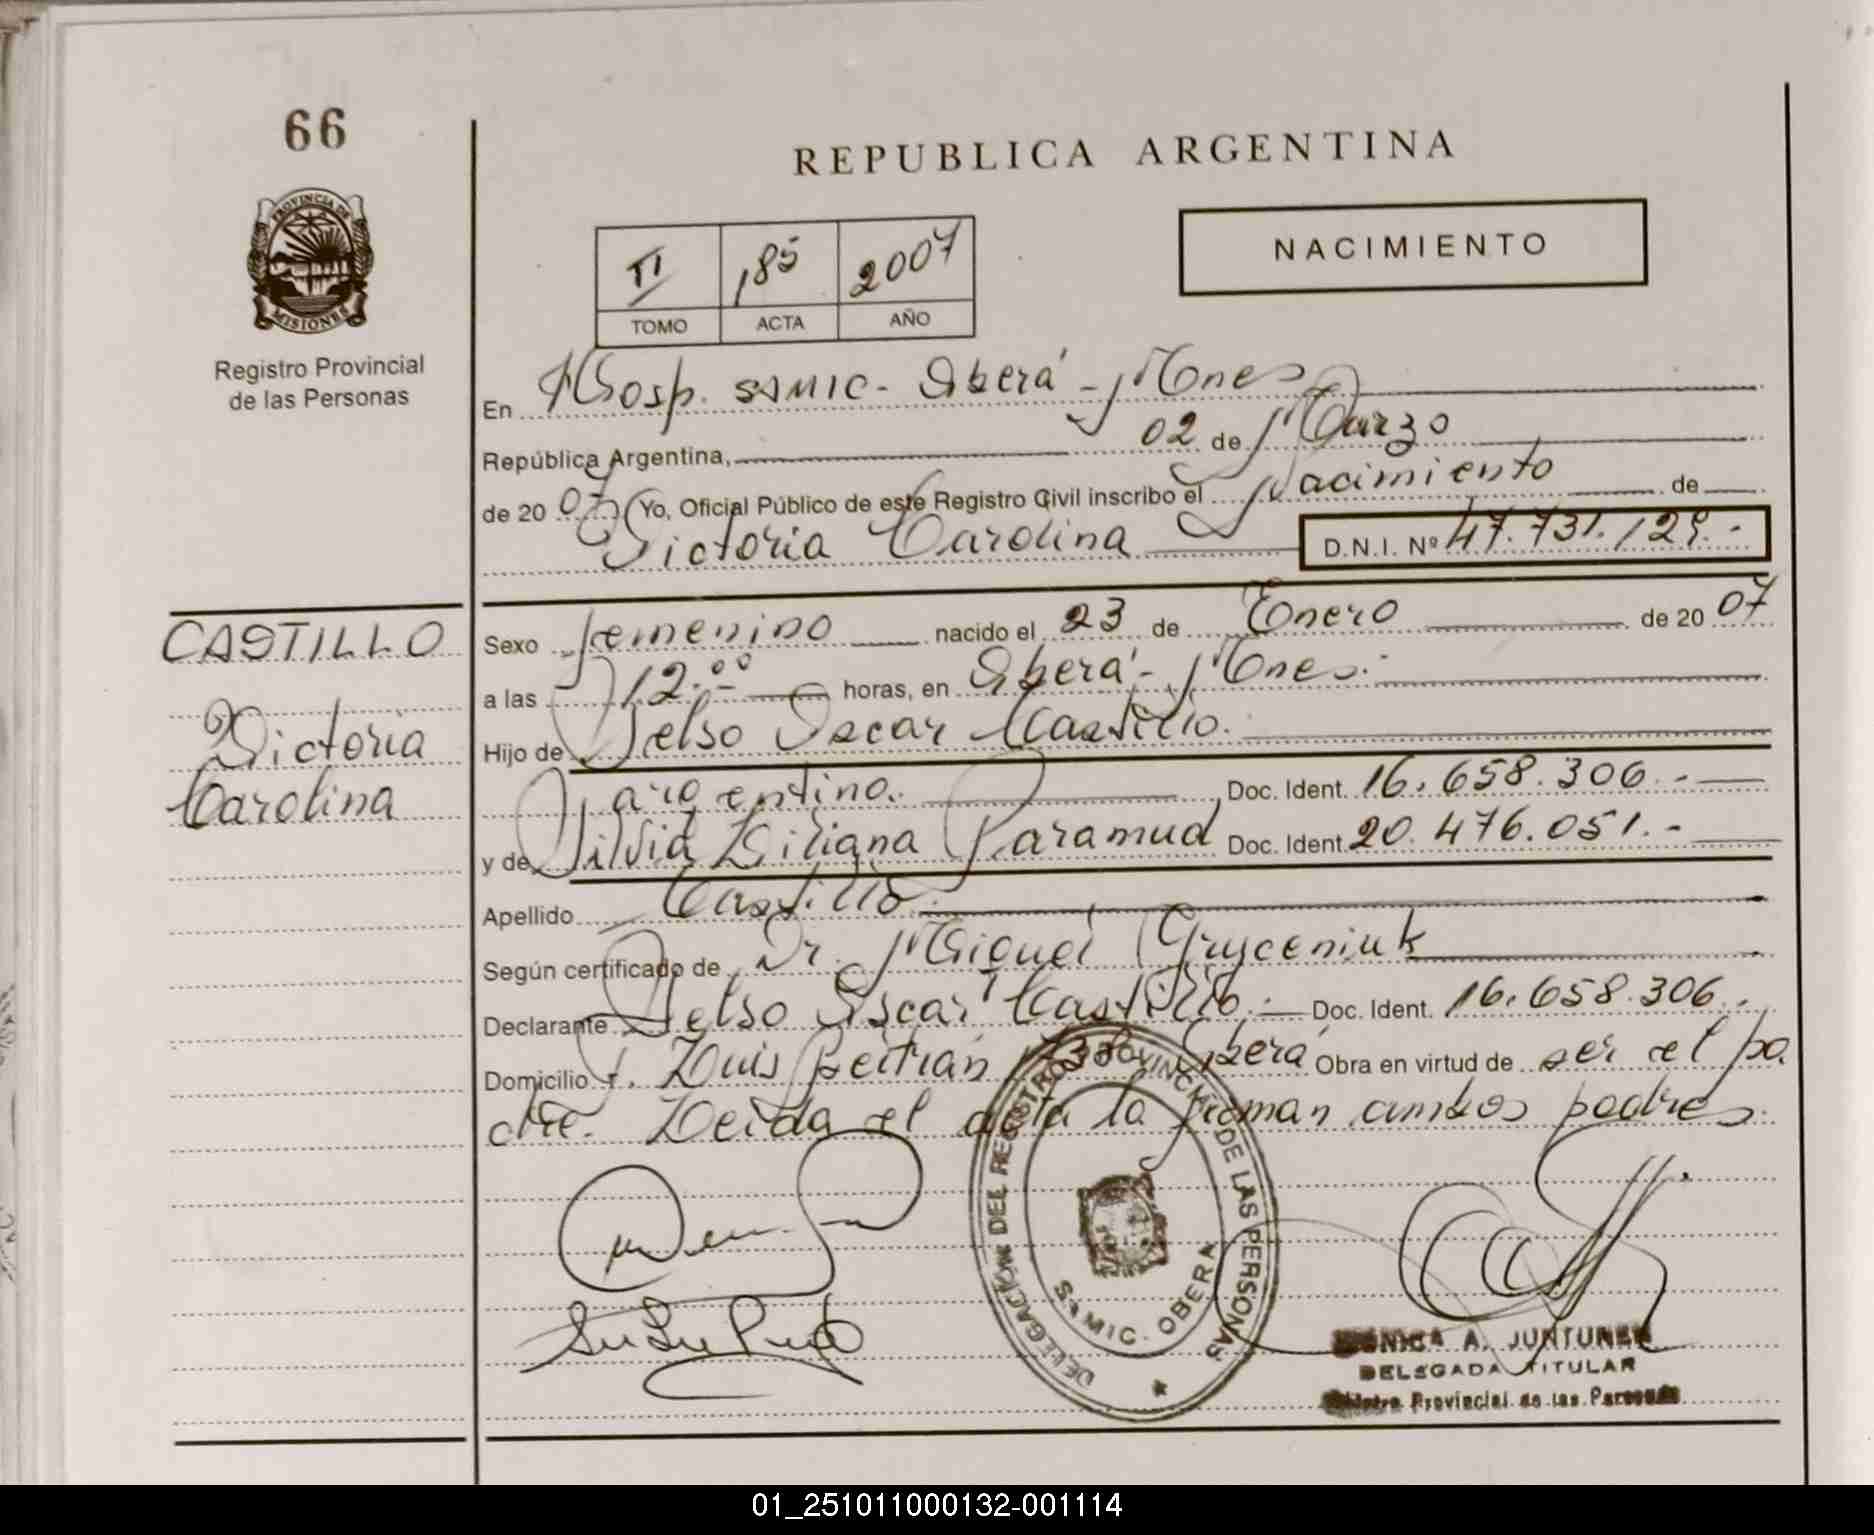 66
REPUBLICA ARGENTINA
PROVINCIA DE
MISIONES
Registro Provincial
de las Personas
II 185 2007
TOMO ACTA AÑO
NACIMIENTO
En Hosp. SAMIC - Oberá - Mnes
República Argentina, 02 de Marzo
de 2007 Yo, Oficial Público de este Registro Civil inscribo el Nacimiento de
Victoria Carolina D.N.I. Nº 47.731.129.-
CASTILLO
Victoria
Carolina
Sexo femenino nacido el 23 de Enero de 2007
a las 12.00 horas, en Oberá - Mnes.
Hijo de Celso Oscar Castillo.
argentino. Doc. Ident. 16.658.306.-
y de Silvia Liliana Paramud Doc. Ident. 20.476.051.-
Apellido Castillo.
Según certificado de Dr. Miguel Gryceniuk
Declarante Celso Oscar Castillo. Doc. Ident. 16.658.306.
Domicilio F. Luis Beltrán Oberá Obra en virtud de ser el pa
dre. Leida el acta la firman ambos padres.
DELEGACIÓN DEL REGISTRO PROVINCIAL DE LAS PERSONAS
SAMIC. OBERA
MONICA A. JUNTUNEN
DELEGADA TITULAR
Registro Provincial de las Personas
01_251011000132-001114